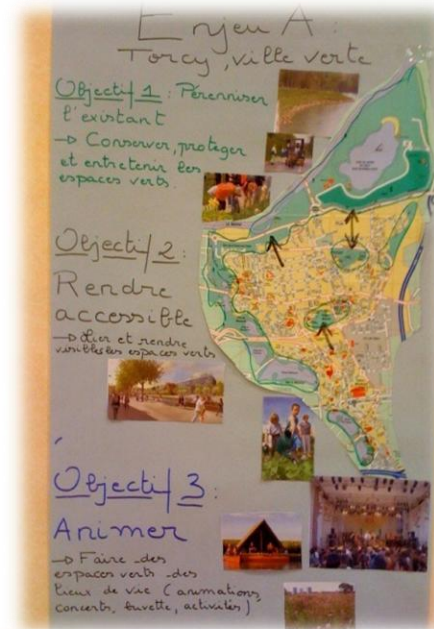 Enjeu A :
Torcy, ville verte
Objectif 1 : Pérenniser
l'existant
→ Conserver, protéger
et entretenir les
espaces verts.
Objectif 2 :
Rendre
accessible
→ Lier et rendre
visibles les espaces verts
Objectif 3 :
Animer
→ Faire des
espaces verts des
lieux de vie (animations,
concerts, buvette, activités)